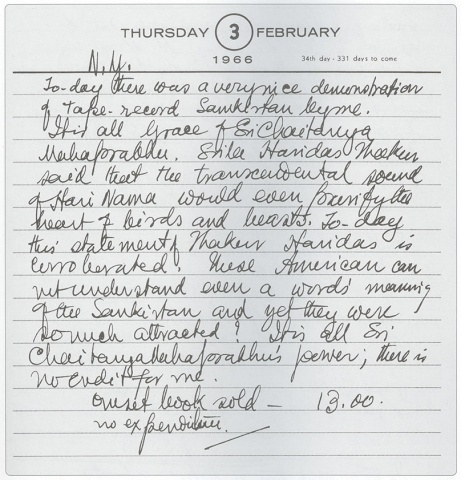 THURSDAY 3 FEBRUARY
1966 34th day - 331 days to come
N.Y.
To-day there was a very nice demonstration
of Tape-record Sankirtan by me.
It is all Grace of Sri Chaitanya
Mahaprabhu. Srila Haridas Thakur
said that the transcendental sound
of Hari Nama would even purify the
heart of birds and beasts. To-day
this statement of Thakur Haridas is
corroberated! These American can
not understand even a words meaning
of the Sankirtan and yet they were
so much attracted! It is all Sri
Chaitanya Mahaprabhu's power; there is
no credit for me.
One set book sold — 13.00.
no expenditure.